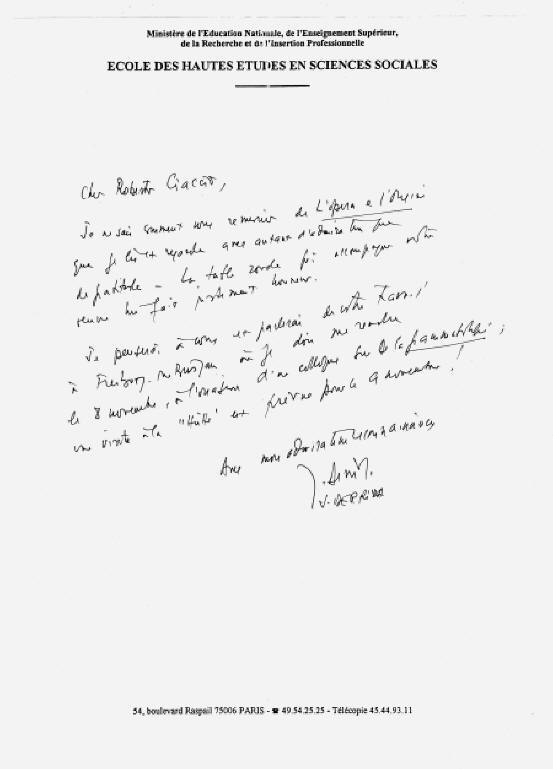 Ministère de l'Education Nationale, de l'Enseignement Supérieur,
de la Recherche et de l'Insertion Professionnelle
ECOLE DES HAUTES ETUDES EN SCIENCES SOCIALES
Cher Roberto
Je ne sais comment vous remercier de L'opera e l'
que je lis et regarde avec autant d'admiration que
de gratitude - La table ronde qui accompagne votre
oeuvre lui fait justement honneur.
Je penserai à vous et parlerai de votre travail
à Freiburg où je dois me rendre
le 8 novembre, à l'occasion d'un colloque sur la grammatologie ;
une visite à la "Hütte" est prévue pour le 9 novembre !
Avec mon admiration reconnaissante
J. DERRIDA
54, boulevard Raspail 75006 PARIS - ☎ 49.54.25.25 - Télécopie 45.44.93.11